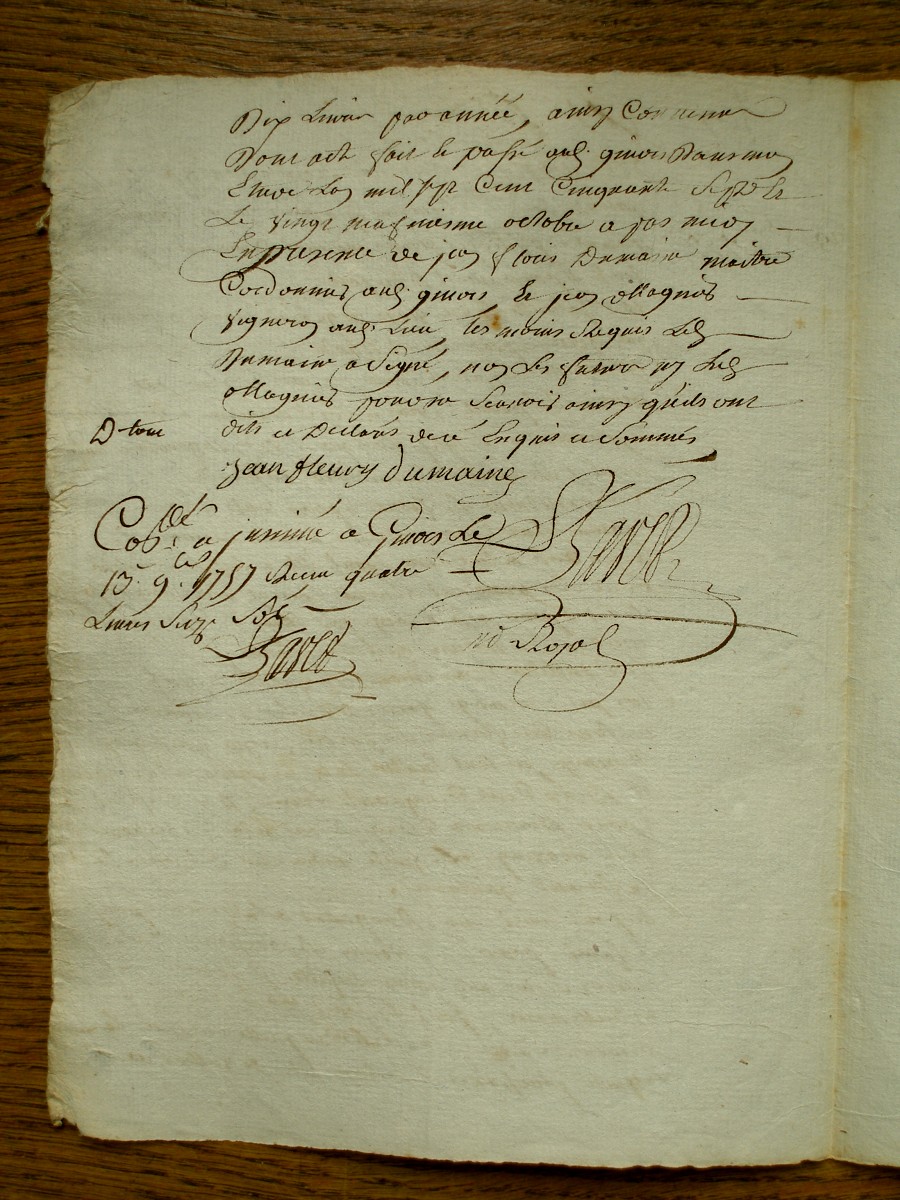 Dix Livres par année, ainsy Convenu
Dont acte fait et passé aud. givors Dans mon
Etude Lan mil sept Cent Cinquante Sept et
Le vingt neufvieme octobre a pres midy
En presence de jean fleury Dumaine maitre
Cordonnier aud. givors, et jean ollagnier
Vigneron aud. Lieu, temoins Requis Led.
Dumaine a Signé, non Les futurs ny Led.
ollagnier pour ne Scavoir ainsy qu'ils ont
dit et Declaré de ce Enquis et Sommés
D. tour
jean fleury dumaine
Collé a givors Le
13e 9bre 1757 Recu quatre
Livres Seize Sols
nre Royal